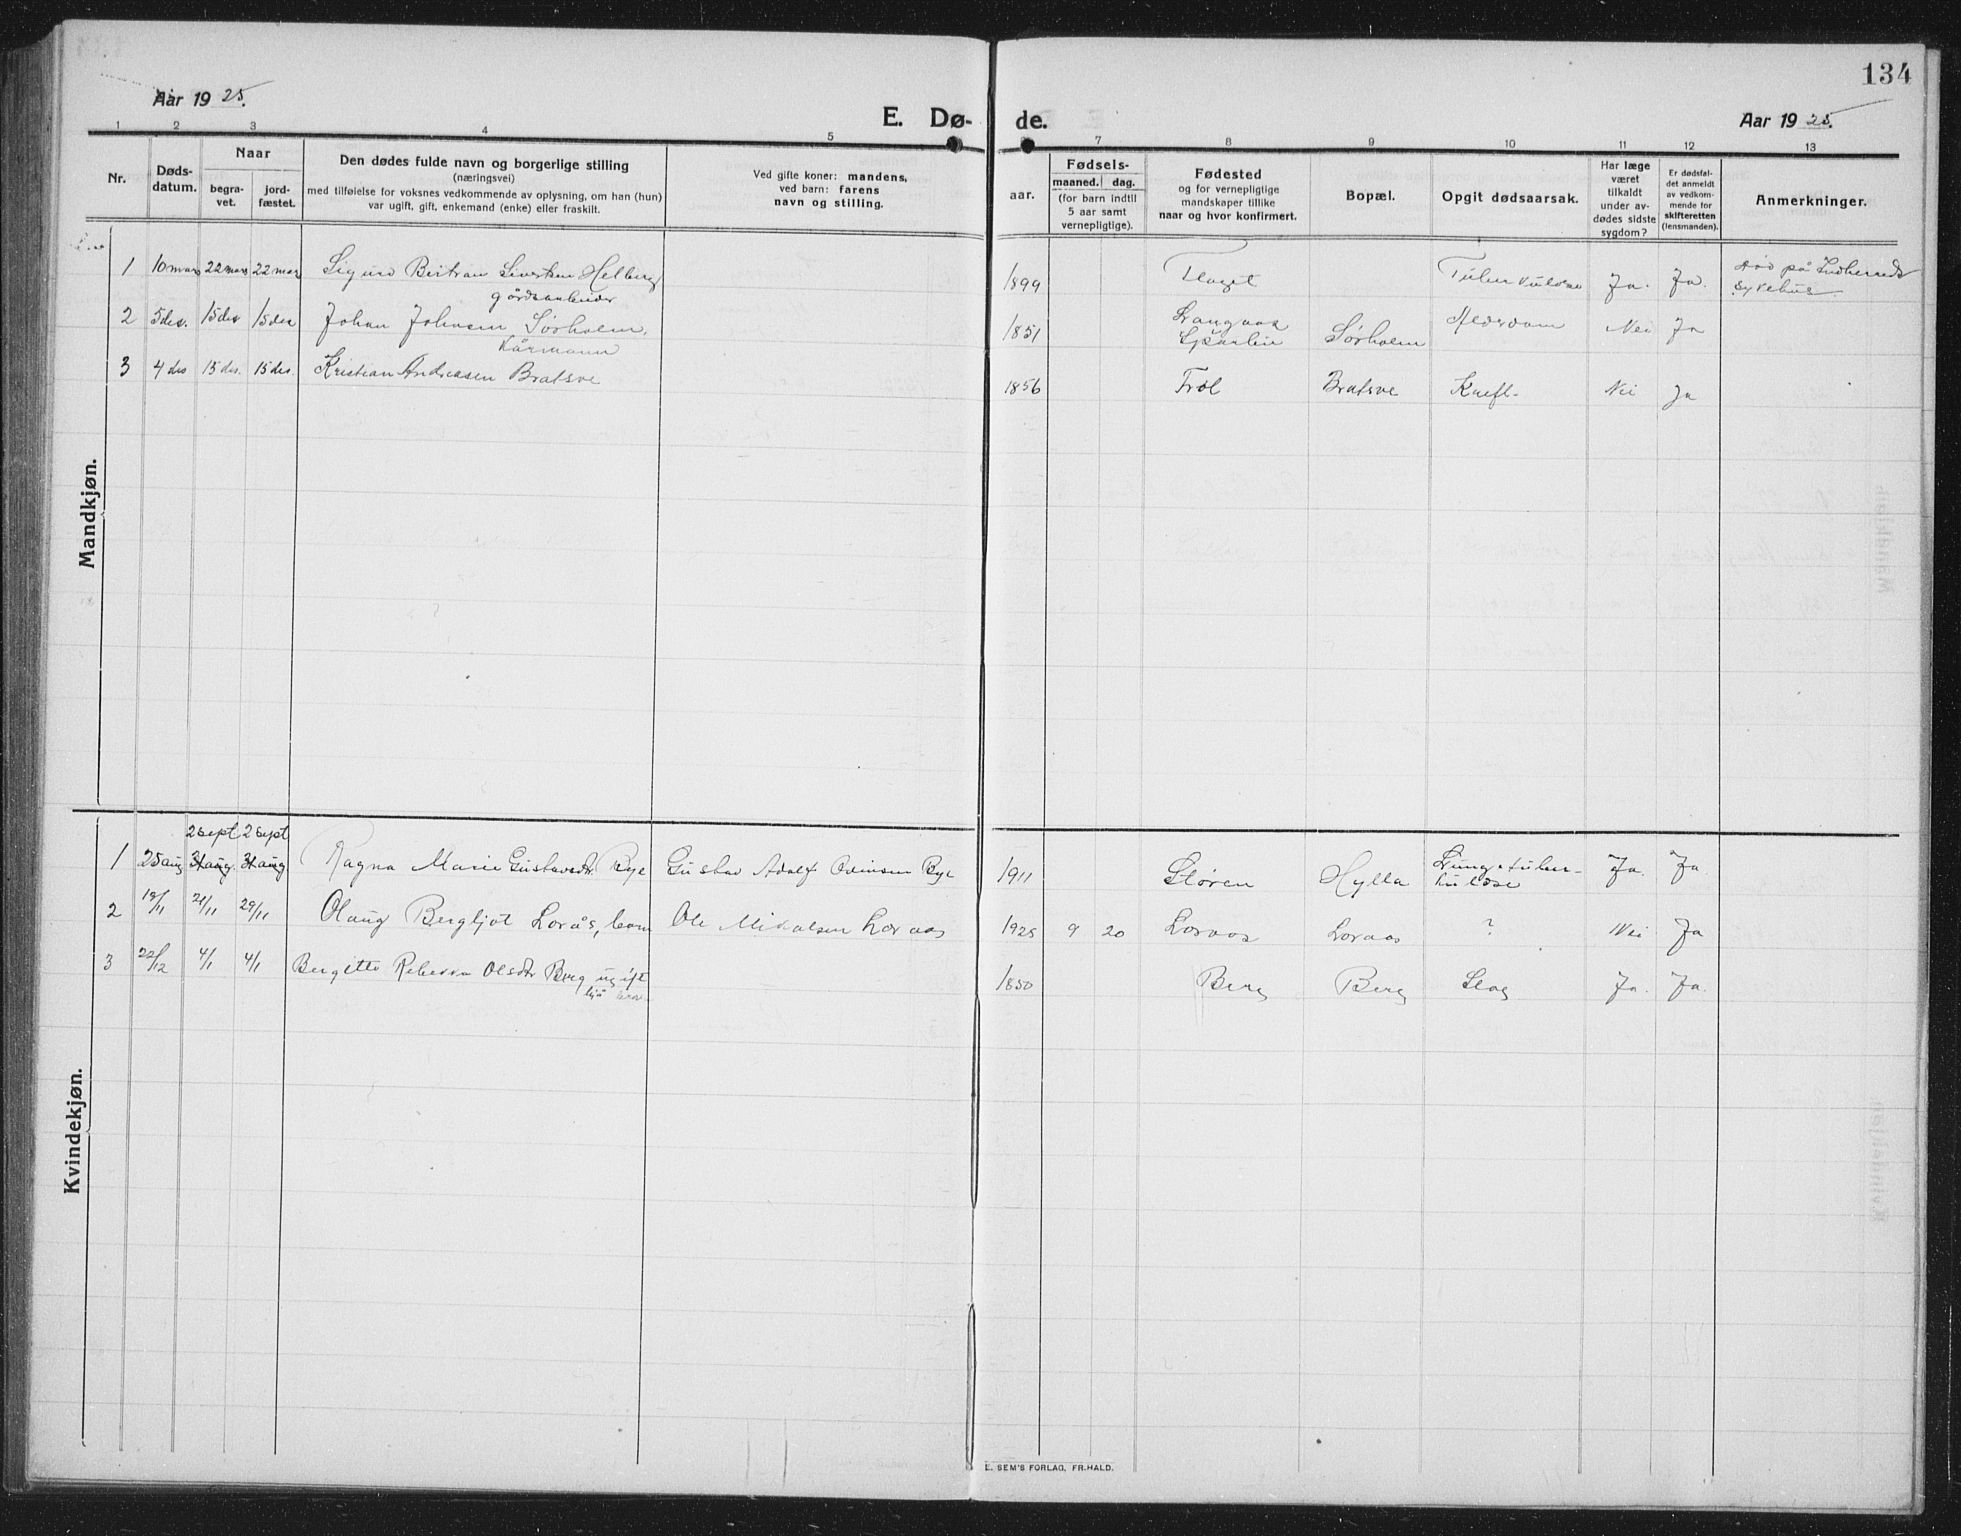 134
Aar 1925.
E. Dø-
de.
Aar 1925.
1 2 3 4 5
7 8 9 10 11 12 13
Nr.
Døds-
datum.
Naar
begra-
vet.
jord-
fæstet.
Den dødes fulde navn og borgerlige stilling
(næringsvei)
med tilføielse for voksnes vedkommende av oplysning, om han (hun)
var ugift, gift, enkemand (enke) eller fraskilt.
Ved gifte koner: mandens,
ved barn: farens
navn og stilling.
aar.
Fødsels-
maaned. dag.
(for barn indtil
5 aar samt
vernepligtige).
Fødested
og for vernepligtige
mandskaper tillike
naar og hvor konfirmert.
Bopæl.
Opgit dødsaarsak.
Har læge
været
tilkaldt
under av-
dødes sidste
sygdom?
Er dødsfal-
det anmeldt
av vedkom-
mende for
skifteretten
(lensmanden).
Anmerkninger.
Mandkjøn.
1 10 mars 22 mars 22 mars Sigurd Helberg 1899 Ja. Ja. død på Indherreds
gårdsarbeider sykehus
2 5 des. 15 des 15 des Johan Johnsen Sørholm, 1851 Sørholm Alderdom Nei Ja
Kårmann
3 4 des 15 des. 15 des. Kristian Andreasen Bratsve 1856 Frol Bratsve Nei Ja
Kvindekjøn.
2 sept 2 sept
1 25 aug 31 aug. 31 aug Ragna Marie Gustavsdr. Bye Gustav Adolf Bye 1911 Støren Hylla Lungetuber- Ja. Ja.
kulose
2 19/11 29/11 Olaug Bergljot Lorås, barn Ole Mikalsen Loraas 1925 9 20 Loraas Loraas ? Nei Ja
3 22/12 4/1 4/1 Rebekka Olsdtr Berg ugift 1850 Berg Berg Slag Ja. Ja.
E. SEM'S FORLAG, FR.HALD.